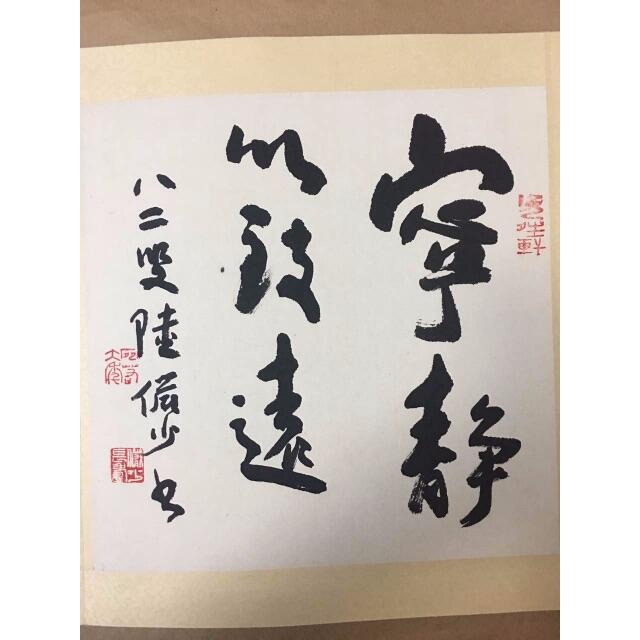 寧靜
以致遠
八二叟陸儼少書